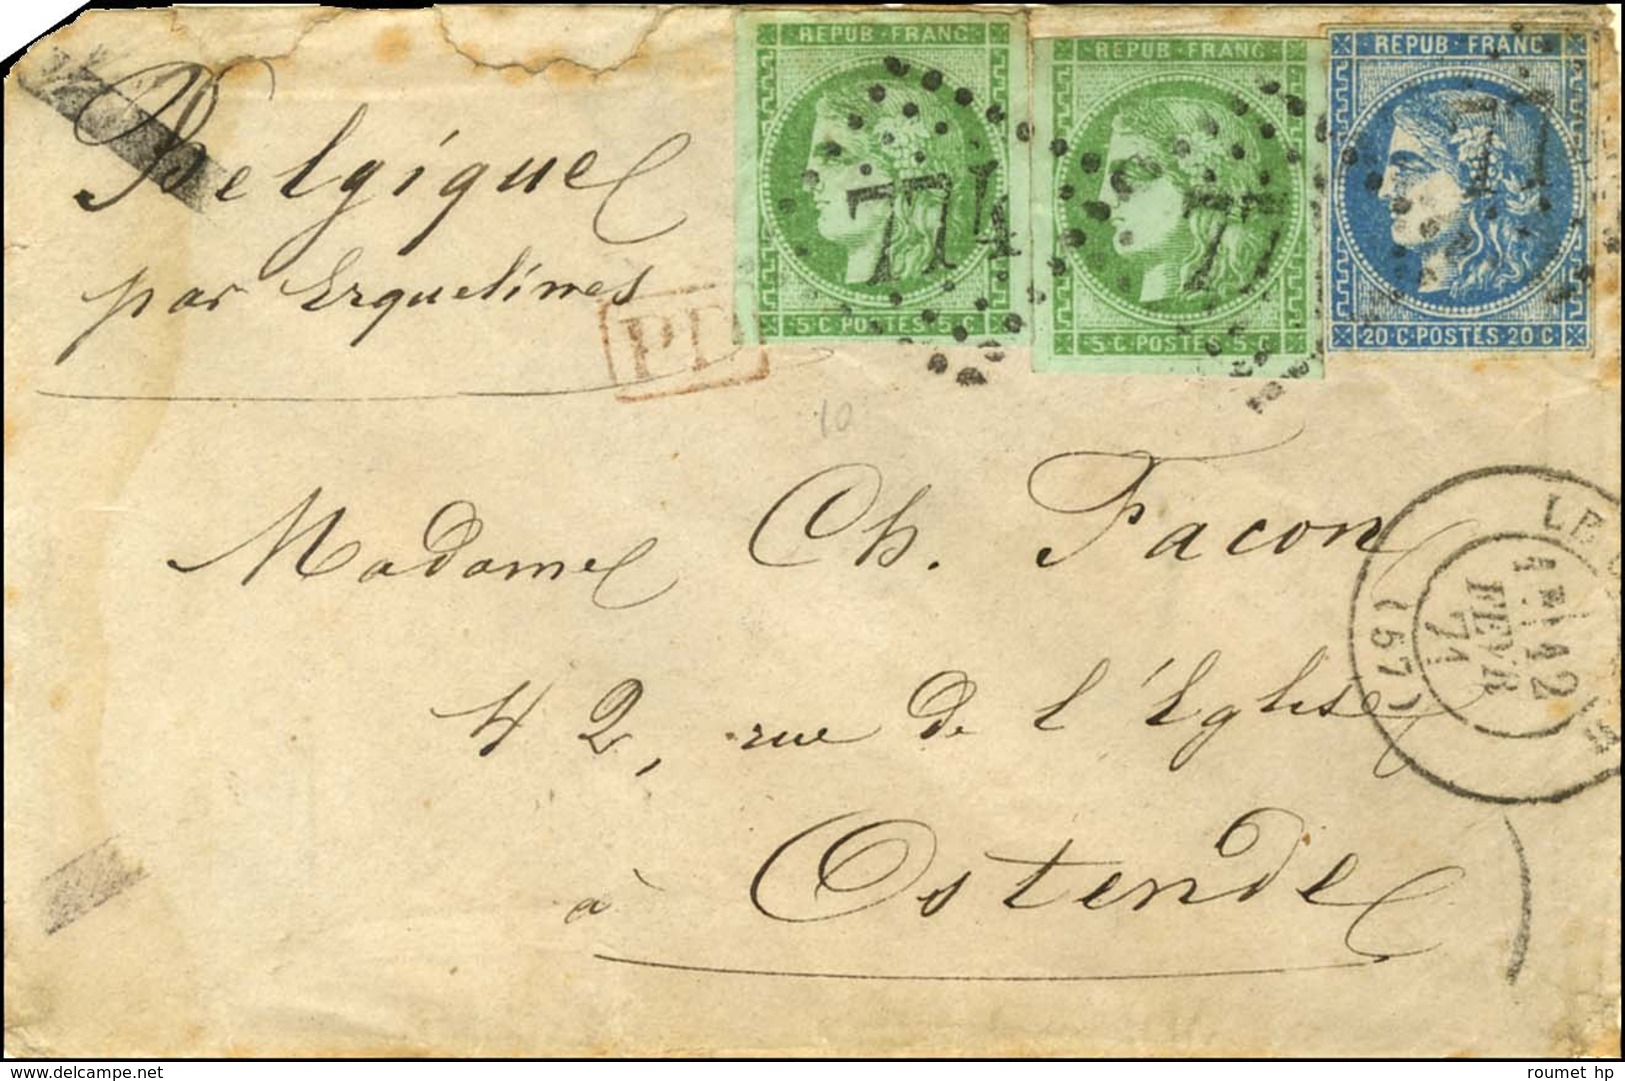 REPUB·FRANC
REPUB·FRANC
REPUB·FRANC
Belgique
par Erquelines
PD
774
77
77
5·C·POSTES·5·C
5·C·POSTES·5·C
20·C·POSTES·20·C
10
Madame Ch. Facon
42, rue de l'Eglise
à Ostende
12
FEVR
71
(57)
delcampe.net
roumet hp